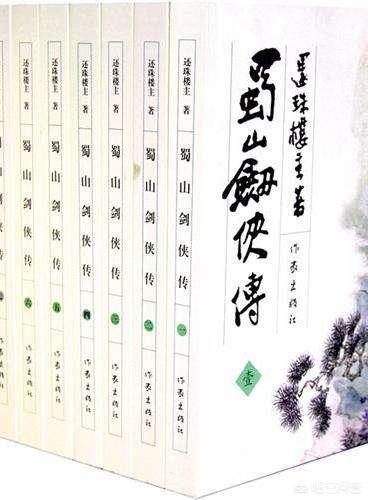 還珠樓主著
作家出版社
蜀山劍俠傳
壹
还珠楼主 著
蜀山剑侠传
一
作家出版社
还珠楼主 著
蜀山剑侠传
二
作家出版社
还珠楼主 著
蜀山剑侠传
三
作家出版社
还珠楼主 著
蜀山剑侠传
四
作家出版社
还珠楼主 著
蜀山剑侠传
五
作家出版社
还珠楼主 著
蜀山剑侠传
六
作家出版社
悟空问答